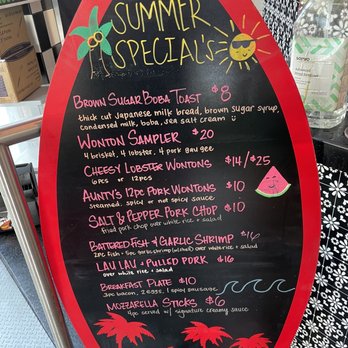 SUMMER
SPECIAL'S
BROWN SUGAR BOBA TOAST $8
thick cut Japanese milk bread, brown sugar syrup,
condensed milk, boba, sea salt cream
WONTON SAMPLER $20
4 brisket, 4 lobster, 4 pork gau gee
CHEESY LOBSTER WONTONS $14/$25
6pcs or 12pcs
AUNTY'S 12PC PORK WONTONS $10
steamed, spicy or not spicy sauce
SALT & PEPPER PORK CHOP $10
fried pork chop over white rice + salad
BATTERED FISH & GARLIC SHRIMP $16
2pc fish + 5pc garlic shrimp (w/shell) over white rice + salad
LAU LAU + PULLED PORK $16
over white rice + salad
BREAKFAST PLATE $10
3pc bacon, 2 eggs, 1 spicy sausage
MOZZARELLA STICKS $6
4pc served w/ signature creamy sauce